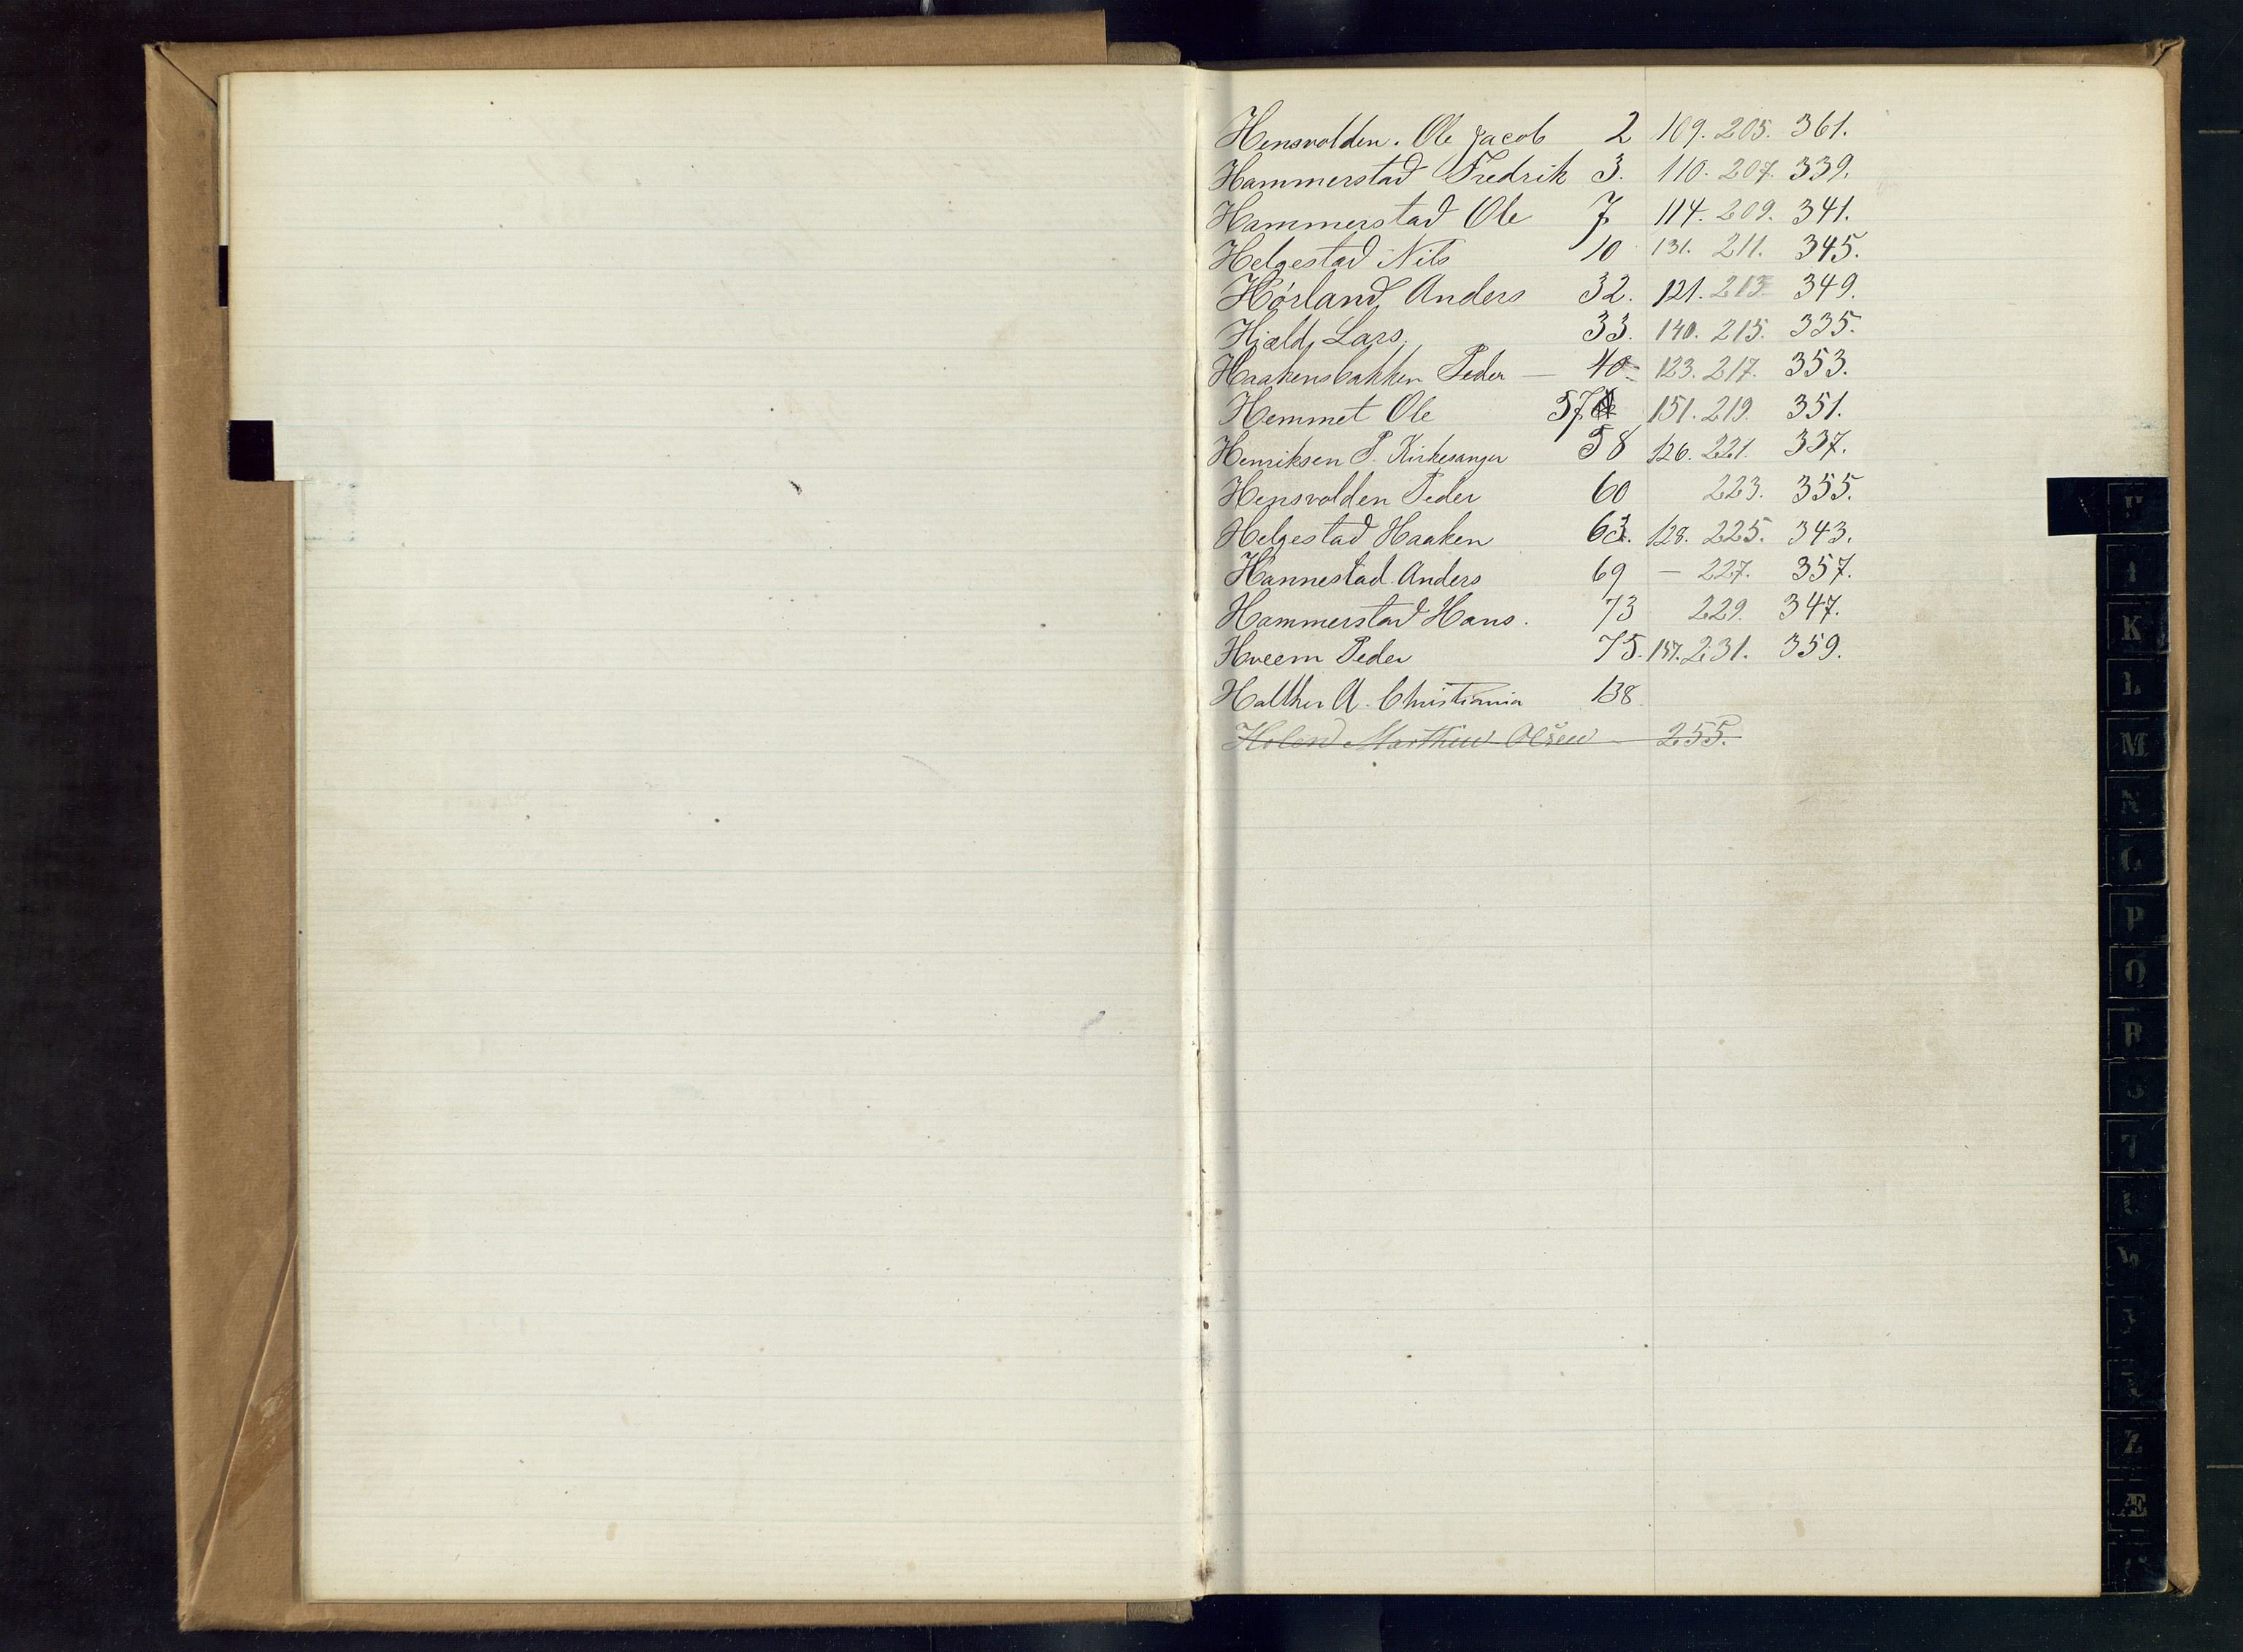 Hensvolden. Ole Jacob 2 109. 205. 361.
Hammerstad Fredrik 3. 110. 207. 339.
Hammerstad Ole 7 114. 209. 341.
Helgestad Nils 10 131. 211. 345.
Hørland, Anders 32. 121. 213 349.
Hjæld, Lars. 33. 140. 215. 335.
Haakensbakken Peder — 40 123. 217. 353.
Hemmet Ole 57 151. 219. 351.
Henriksen P. Kirkesanger 58 126. 221. 337.
Hensvolden Peder 60 223. 355.
Helgestad Haaken 63. 128. 225. 343.
Hannestad. Anders 69 — 227. 357.
Hammerstad Hans. 73 229. 347.
Hveem Peder 75. 157. 231. 359.
Halther A. Christiania 138
Holand Marthin Olsen 255.
H
I
K
L
M
N
O
P
Q
R
S
T
W
Z
Æ